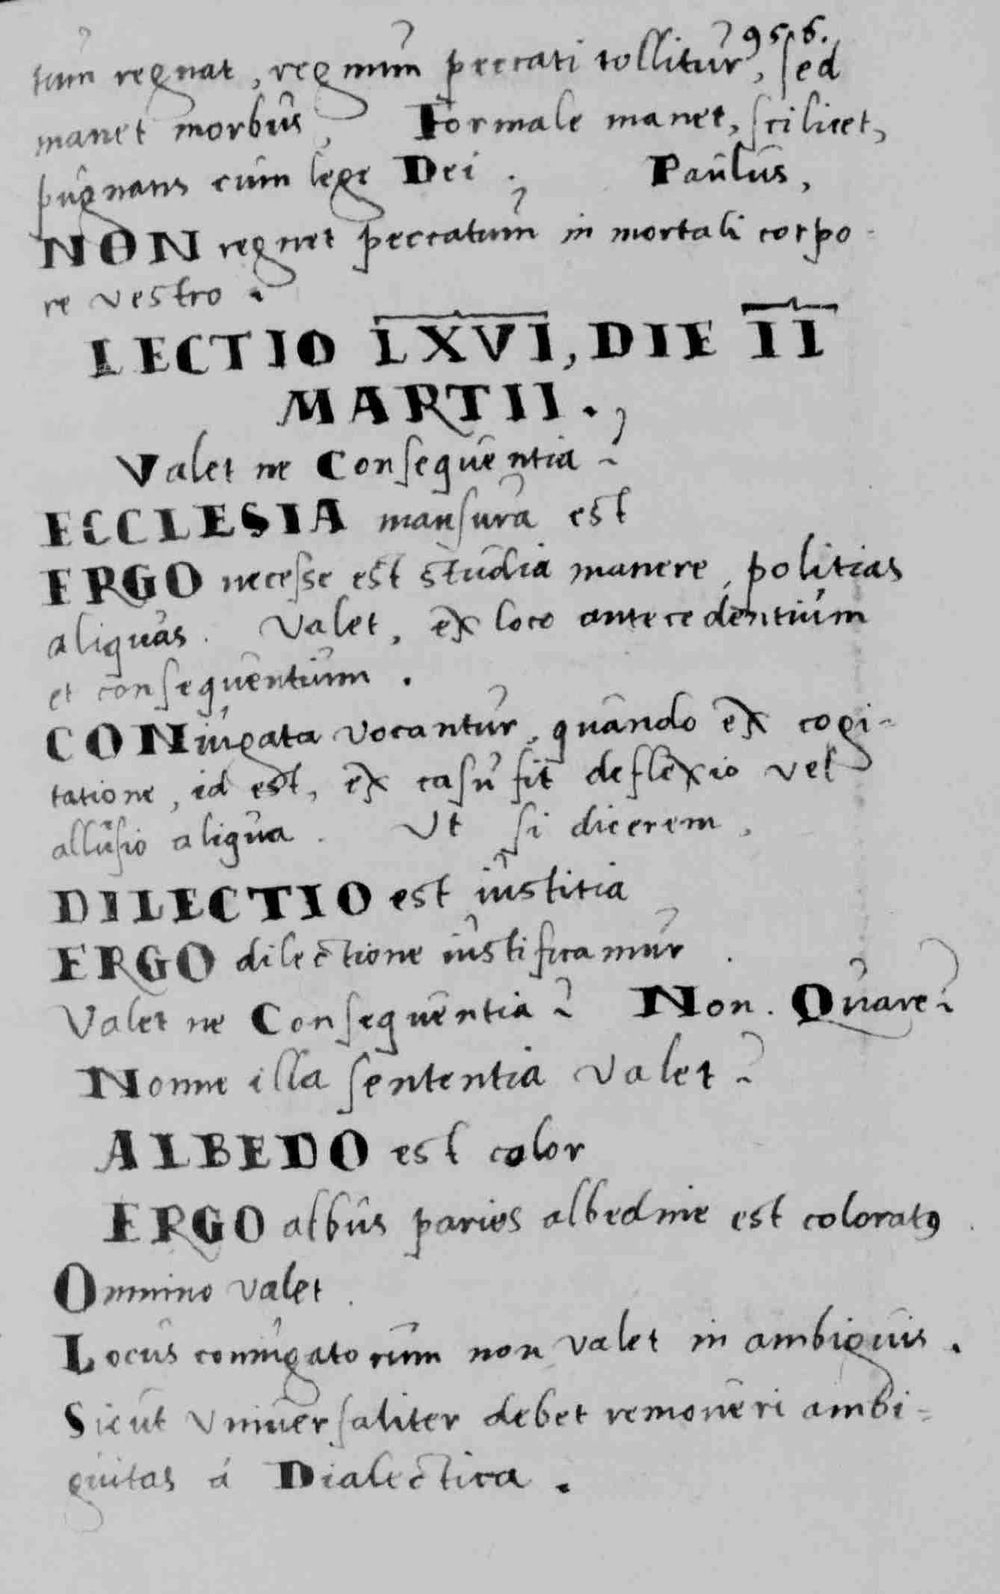 955.
tum regnat, regnum peccati tollitur, sed
manet morbus, Formale manet, scilicet,
pugnans cum lege Dei. Paulus,
NON regnet peccatum in mortali corpo-
re vestro.
LECTIO LXVI, DIE II
MARTII.
Valet ne Consequentia?
ECCLESIA mansura est
ERGO necesse est studia manere, politias
aliquas. Valet, ex loco antecedentium
et consequentium.
CONiugata vocantur, quando ex cogi-
tatione, id est, ex casu fit deflexio vel
allusio aliqua. Ut si dicerem,
DILECTIO est iustitia
ERGO dilectione iustificamur.
Valet ne Consequentia? Non. Quare?
Nonne illa sententia valet?
ALBEDO est color
ERGO albus paries albedine est coloratꝯ.
Omnino valet.
Locus coniugatorum non valet in ambiguis.
Sicut Vniuersaliter debet remoueri ambi-
guitas á Dialectica.